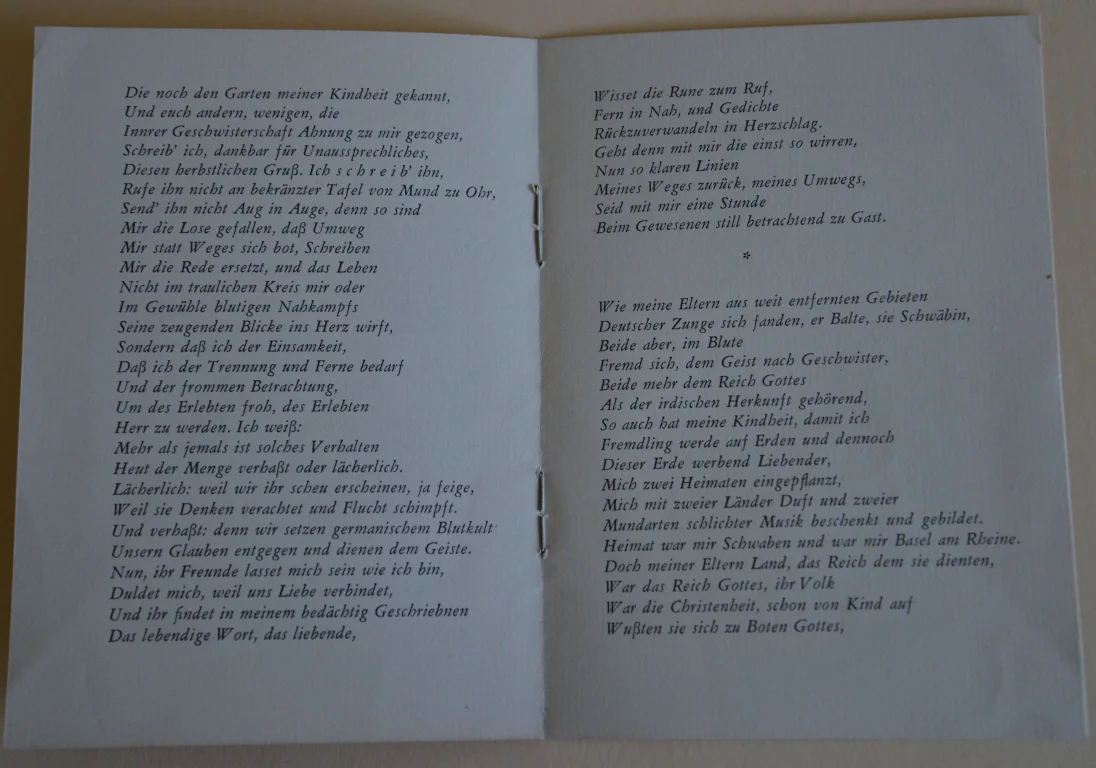 Die noch den Garten meiner Kindheit gekannt,
Und euch andern, wenigen, die
Innrer Geschwisterschaft Ahnung zu mir gezogen,
Schreib' ich, dankbar für Unaussprechliches,
Diesen herbstlichen Gruß. Ich s c h r e i b' ihn,
Rufe ihn nicht an bekränzter Tafel von Mund zu Ohr,
Send' ihn nicht Aug in Auge, denn so sind
Mir die Lose gefallen, daß Umweg
Mir statt Weges sich bot, Schreiben
Mir die Rede ersetzt, und das Leben
Nicht im traulichen Kreis mir oder
Im Gewühle blutigen Nahkampfs
Seine zeugenden Blicke ins Herz wirft,
Sondern daß ich der Einsamkeit,
Daß ich der Trennung und Ferne bedarf
Und der frommen Betrachtung,
Um des Erlebten froh, des Erlebten
Herr zu werden. Ich weiß:
Mehr als jemals ist solches Verhalten
Heut der Menge verhaßt oder lächerlich.
Lächerlich: weil wir ihr scheu erscheinen, ja feige,
Weil sie Denken verachtet und Flucht schimpft.
Und verhaßt: denn wir setzen germanischem Blutkult
Unsern Glauben entgegen und dienen dem Geiste.
Nun, ihr Freunde lasset mich sein wie ich bin,
Duldet mich, weil uns Liebe verbindet,
Und ihr findet in meinem bedächtig Geschriebnen
Das lebendige Wort, das liebende,
Wisset die Rune zum Ruf,
Fern in Nah, und Gedichte
Rückzuverwandeln in Herzschlag.
Geht denn mit mir die einst so wirren,
Nun so klaren Linien
Meines Weges zurück, meines Umwegs,
Seid mit mir eine Stunde
Beim Gewesenen still betrachtend zu Gast.
*
Wie meine Eltern aus weit entfernten Gebieten
Deutscher Zunge sich fanden, er Balte, sie Schwäbin,
Beide aber, im Blute
Fremd sich, dem Geist nach Geschwister,
Beide mehr dem Reich Gottes
Als der irdischen Herkunft gehörend,
So auch hat meine Kindheit, damit ich
Fremdling werde auf Erden und dennoch
Dieser Erde werbend Liebender,
Mich zwei Heimaten eingepflanzt,
Mich mit zweier Länder Duft und zweier
Mundarten schlichter Musik beschenkt und gebildet.
Heimat war mir Schwaben und war mir Basel am Rheine.
Doch meiner Eltern Land, das Reich dem sie dienten,
War das Reich Gottes, ihr Volk
War die Christenheit, schon von Kind auf
Wußten sie sich zu Boten Gottes,